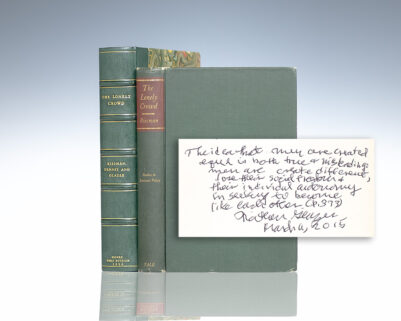 THE LONELY
CROWD
RIESMAN,
DENNEY AND
GLAZER
The
Lonely
Crowd
Riesman
YALE
The idea that men are created
equal is both true & misleading:
men are created different,
lose their social freedom &
their individual autonomy
in seeking to become
like each other (p. 373)
Nathan Glazer
March 6, 2015